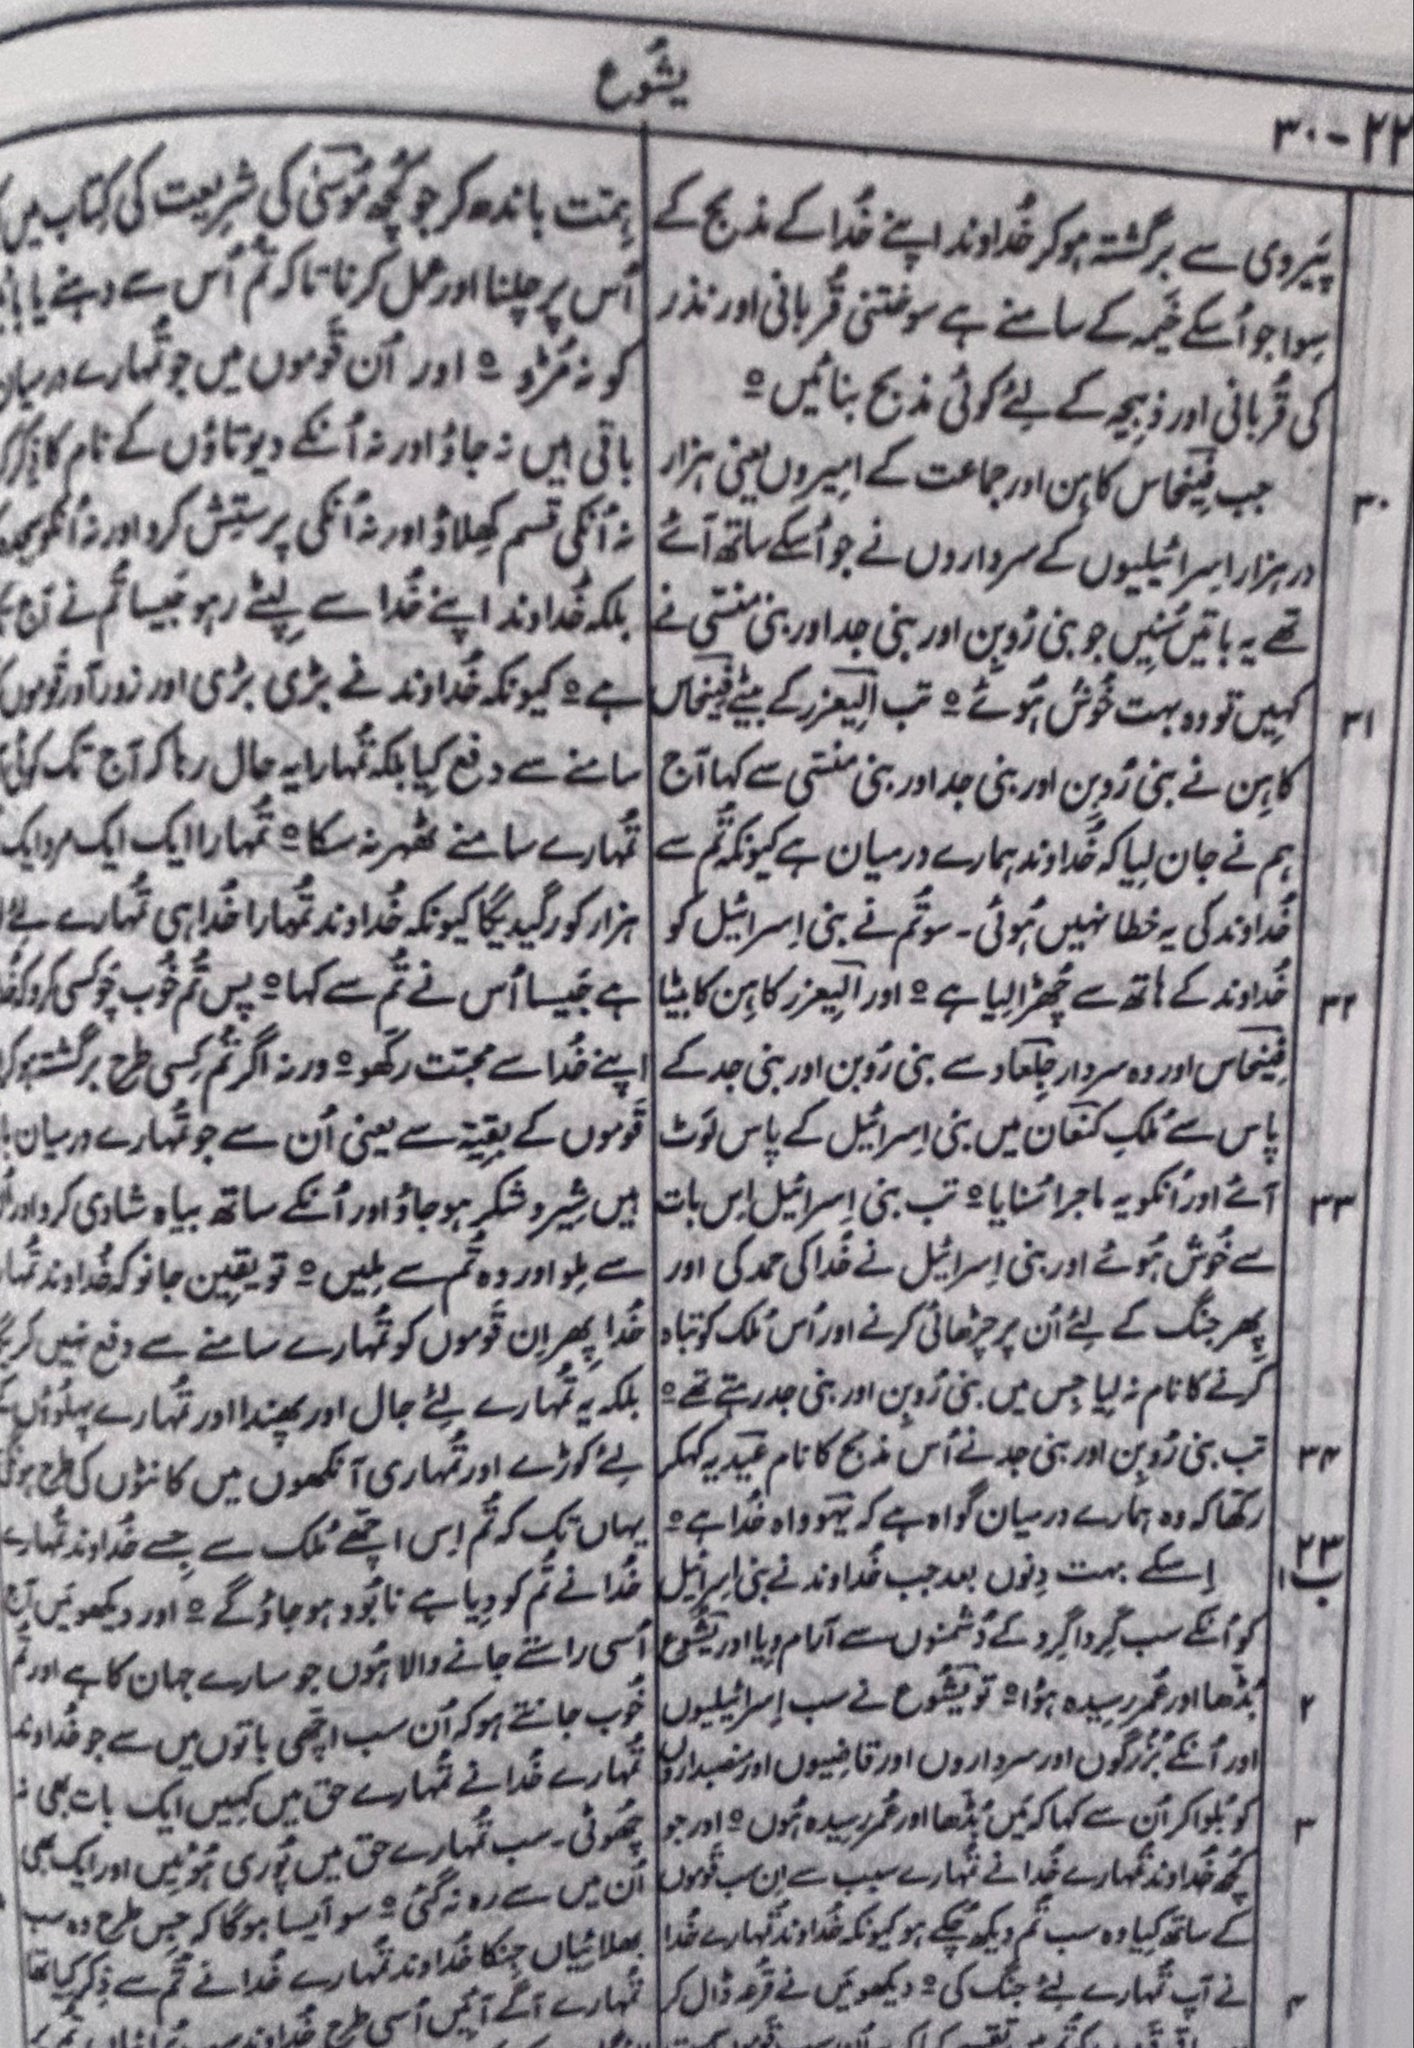 یشُوع
۲۲-۳۰
پَیروی سے برگشتہ ہو کر خُداوند اپنے خُدا کے مذبح کے
سِوا جو اُسکے خَیمہ کے سامنے ہے سوختنی قُربانی اور نذر
کی قُربانی اور ذبیحہ کے لِئے کوئی مذبح بنائیں۝
۳۰ جب فِینحاس کاہِن اور جماعت کے امِیروں یعنی ہزار
در ہزار اِسرائیلیوں کے سرداروں نے جو اُسکے ساتھ آئے
تھے یہ باتیں سُنِیں جو بنی رُوبِن اور بنی جد اور بنی منسّی نے
۳۱ کہِیں تو وہ بہت خُوش ہُوئے۝ تب الیعزر کے بیٹے فِینحاس
کاہِن نے بنی رُوبِن اور بنی جد اور بنی منسّی سے کہا آج
ہم نے جان لِیا کہ خُداوند ہمارے درمیان ہے کیونکہ تُم سے
خُداوند کی یہ خطا نہیں ہُوئی۔ سو تُم نے بنی اِسرائیل کو
۳۲ خُداوند کے ہاتھ سے چُھڑا لِیا ہے۝ اور الیعزر کاہِن کا بیٹا
فِینحاس اور وہ سردار جِلعاد سے بنی رُوبن اور بنی جد کے
پاس سے مُلکِ کنعان میں بنی اِسرائیل کے پاس لَوٹ
۳۳ آئے اور اُنکو یہ ماجرا سُنایا۝ تب بنی اِسرائیل اِس بات
سے خُوش ہُوئے اور بنی اِسرائیل نے خُدا کی حمد کی اور
پِھر جنگ کے لِئے اُن پر چڑھائی کرنے اور اُس مُلک کو تباہ
کرنے کا نام نہ لِیا جِس میں بنی رُوبِن اور بنی جد رہتے تھے۝
۳۴ تب بنی رُوبِن اور بنی جد نے اُس مذبح کا نام عید یہ کہکر
رکھّا کہ وہ ہمارے درمیان گواہ ہے کہ یہوواہ خُدا ہے۝
۲۳ باب۱ اِسکے بہت دِنوں بعد جب خُداوند نے بنی اِسرائیل
کو اُنکے سب گِردا گِرد کے دُشمنوں سے آرام دِیا اور یشُوع
۲ بُڈّھا اور عُمر رسِیدہ ہُؤا۝ تو یشُوع نے سب اِسرائیلیوں
اور اُنکے بُزُرگوں اور سرداروں اور قاضِیوں اور منصبداروں
۳ کو بُلوا کر اُن سے کہا کہ مَیں بُڈّھا اور عُمر رسِیدہ ہُوں۝ اور جو
کُچھ خُداوند تُمہارے خُدا نے تُمہارے سبب سے اِن سب قَوموں
کے ساتھ کِیا وہ سب تُم دیکھ چُکے ہو کیونکہ خُداوند تُمہارے خُدا
۴ نے آپ تُمہارے لِئے جنگ کی۝ دیکھو مَیں نے قُرعہ ڈال کر
ہِمّت باندھ کر جو کُچھ مُوسیٰ کی شرِیعت کی کِتاب میں
اُس پر چلنا اور عمل کرنا تاکہ تُم اُس سے دہنے یا
کو نہ مُڑو۝ اور اُن قَوموں میں جو تُمہارے درمیان
باقی ہیں نہ جاؤ اور نہ اُنکے دیوتاؤں کے نام کا ذِکر
نہ اُنکی قسم کِھلاؤ اور نہ اُنکی پرستِش کرو اور نہ اُنکو سجدہ
بلکہ خُداوند اپنے خُدا سے لِپٹے رہو جَیسا تُم نے آج
ہے۝ کیونکہ خُداوند نے بڑی بڑی اور زورآور قَوموں
سامنے سے دفع کِیا بلکہ تُمہارا یہ حال رہا کہ آج تک کوئی
تُمہارے سامنے ٹھہر نہ سکا۝ تُمہارا ایک ایک مرد ایک
ہزار کو رگیدیگا کیونکہ خُداوند تُمہارا خُدا ہی تُمہارے لِئے
ہے جَیسا اُس نے تُم سے کہا۝ پس تُم خُوب چَوکسی کرو کہ
اپنے خُدا سے مُحبّت رکھّو۝ ورنہ اگر تُم کِسی طرح برگشتہ ہو کر
قَوموں کے بقِیّہ سے یعنی اُن سے جو تُمہارے درمیان
ہیں شِیر و شکر ہو جاؤ اور اُنکے ساتھ بیاہ شادی کرو اور
سے مِلو اور وہ تُم سے مِلیں۝ تو یقِین جانو کہ خُداوند
خُدا پِھر اِن قَوموں کو تُمہارے سامنے سے دفع نہیں
بلکہ یہ تُمہارے لِئے جال اور پھندا اور تُمہارے پہلُوؤں
لِئے کوڑے اور تُمہاری آنکھوں میں کانٹوں کی طرح
یہاں تک کہ تُم اِس اچّھے مُلک سے جِسے خُداوند تُمہارے
خُدا نے تُم کو دِیا ہے نابُود ہو جاؤ گے۝ اور دیکھو مَیں آج
اُسی راستے جانے والا ہُوں جو سارے جہان کا ہے اور تُم
خُوب جانتے ہو کہ اُن سب اچّھی باتوں میں سے جو خُداوند
تُمہارے خُدا نے تُمہارے حق میں کہِیں ایک بات بھی نہ
چُھوٹی۔ سب تُمہارے حق میں پُوری ہُوئیں اور ایک بھی
اُن میں سے رہ نہ گئی۝ سو اَیسا ہوگا کہ جِس طرح وہ سب
بھلائِیاں جِنکا خُداوند تُمہارے خُدا نے تُم سے ذِکر کِیا تھا
تُمہارے آگے آئِیں اُسی طرح خُداوند